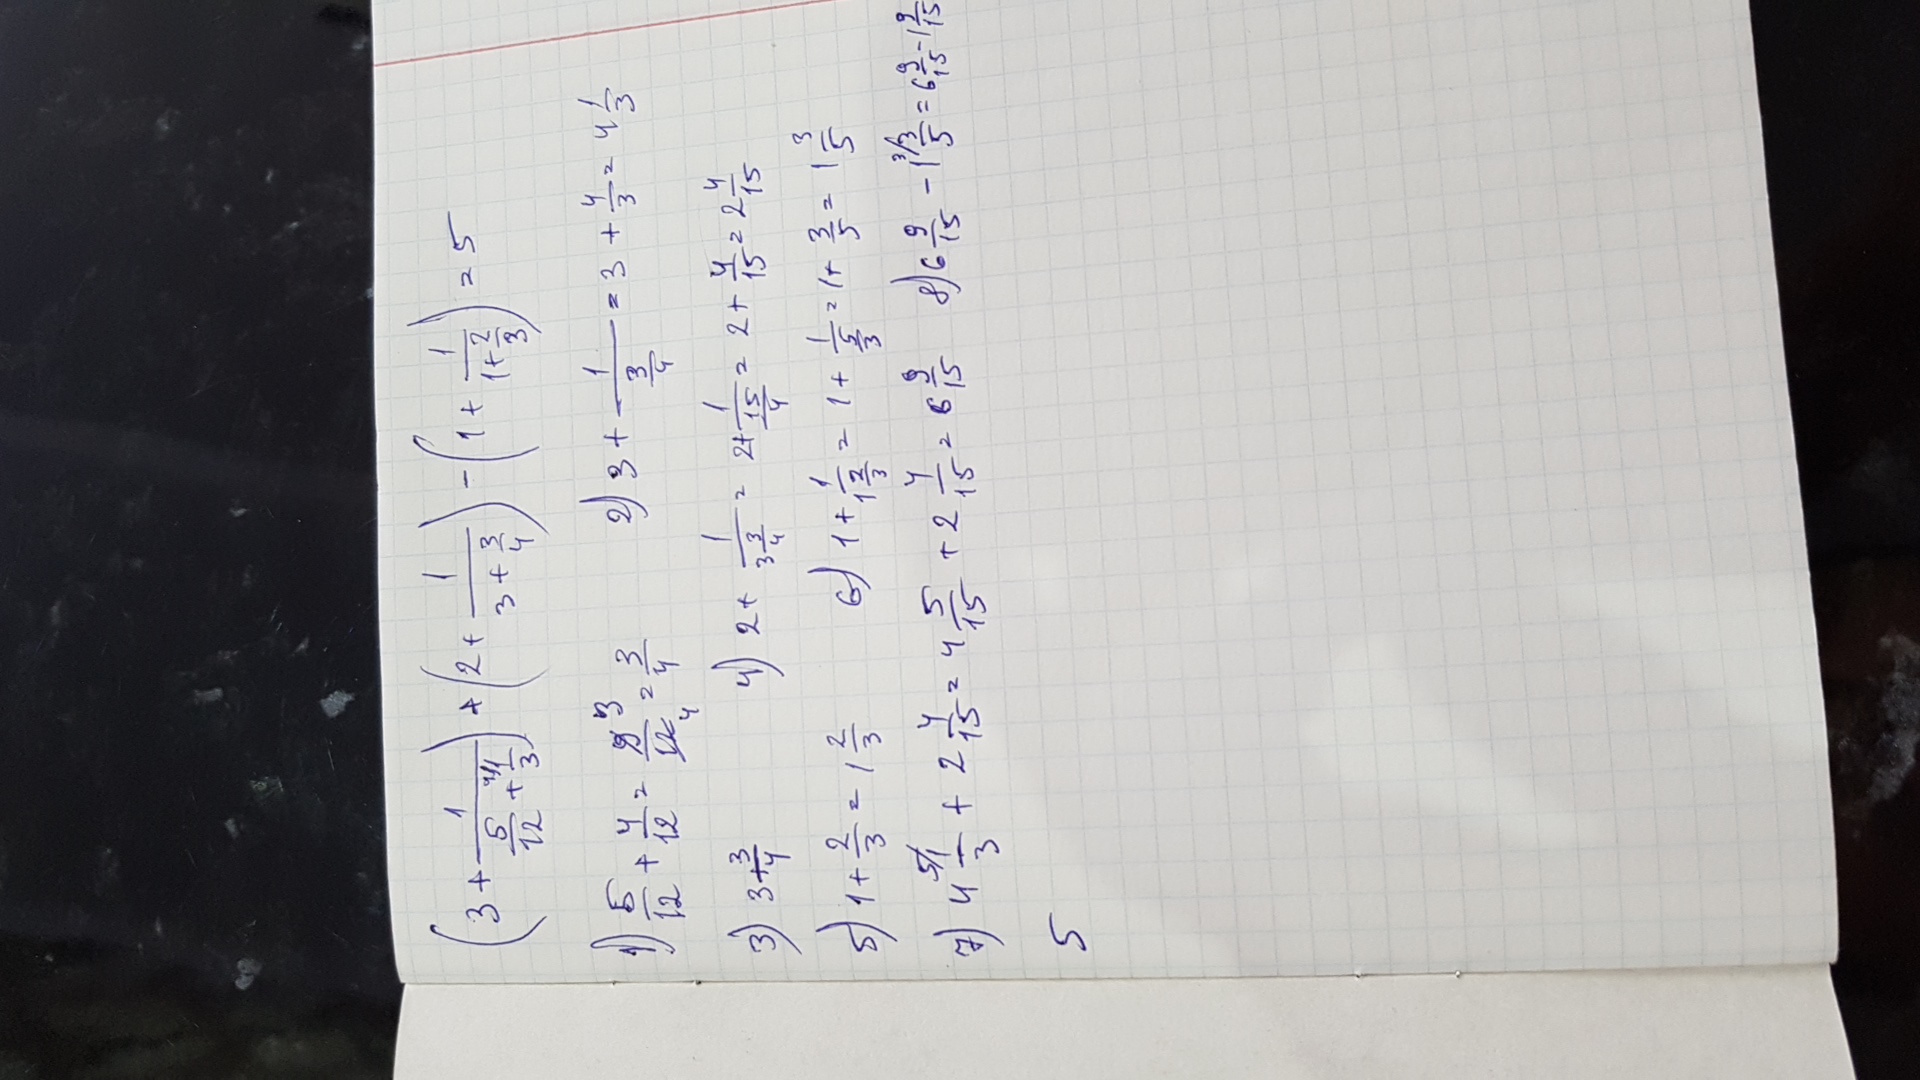 (3 + 1/(5/12 + 4/1/3)) + (2 + 1/(3 + 3/4)) - (1 + 1/(1 + 2/3)) = 5
1) 5/12 + 4/12 = 9 3/12 4 = 3/4 2) 3 + 1/(3/4) = 3 + 4/3 = 4 1/3
3) 3 + 3/4 4) 2 + 1/(3 3/4) = 2 + 1/(15/4) = 2 + 4/15 = 2 4/15
5) 1 + 2/3 = 1 2/3 6) 1 + 1/(1 2/3) = 1 + 1/(5/3) = 1 + 3/5 = 1 3/5
7) 4 5/1/3 + 2 4/15 = 4 5/15 + 2 4/15 = 6 9/15 8) 6 9/15 - 1 3/3/5 = 6 9/15 - 1 9/15
5